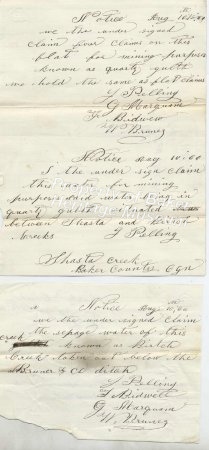 Notice Aug 10th/69
we the under signed
claim four claims on this
flat for mining purposes
known as quartz gulch
we hold the same as flat claims
J Pelling
G Marquam
J Bidwell
W Bruner
Notice Aug 10/60
I the under sign claim
this water for mining
purposes said water being in
quartz gulch situated
between Shasta and
creeks J Pelling
Shasta Creek
Baker County Ogn
Notice Aug 10th/60
we the under signed claim
the sepage water of this
creek known as Birch
Creek taken out below the
Bruner & Co ditch
J Pelling
J Bidwell
G Marquam
W Bruner